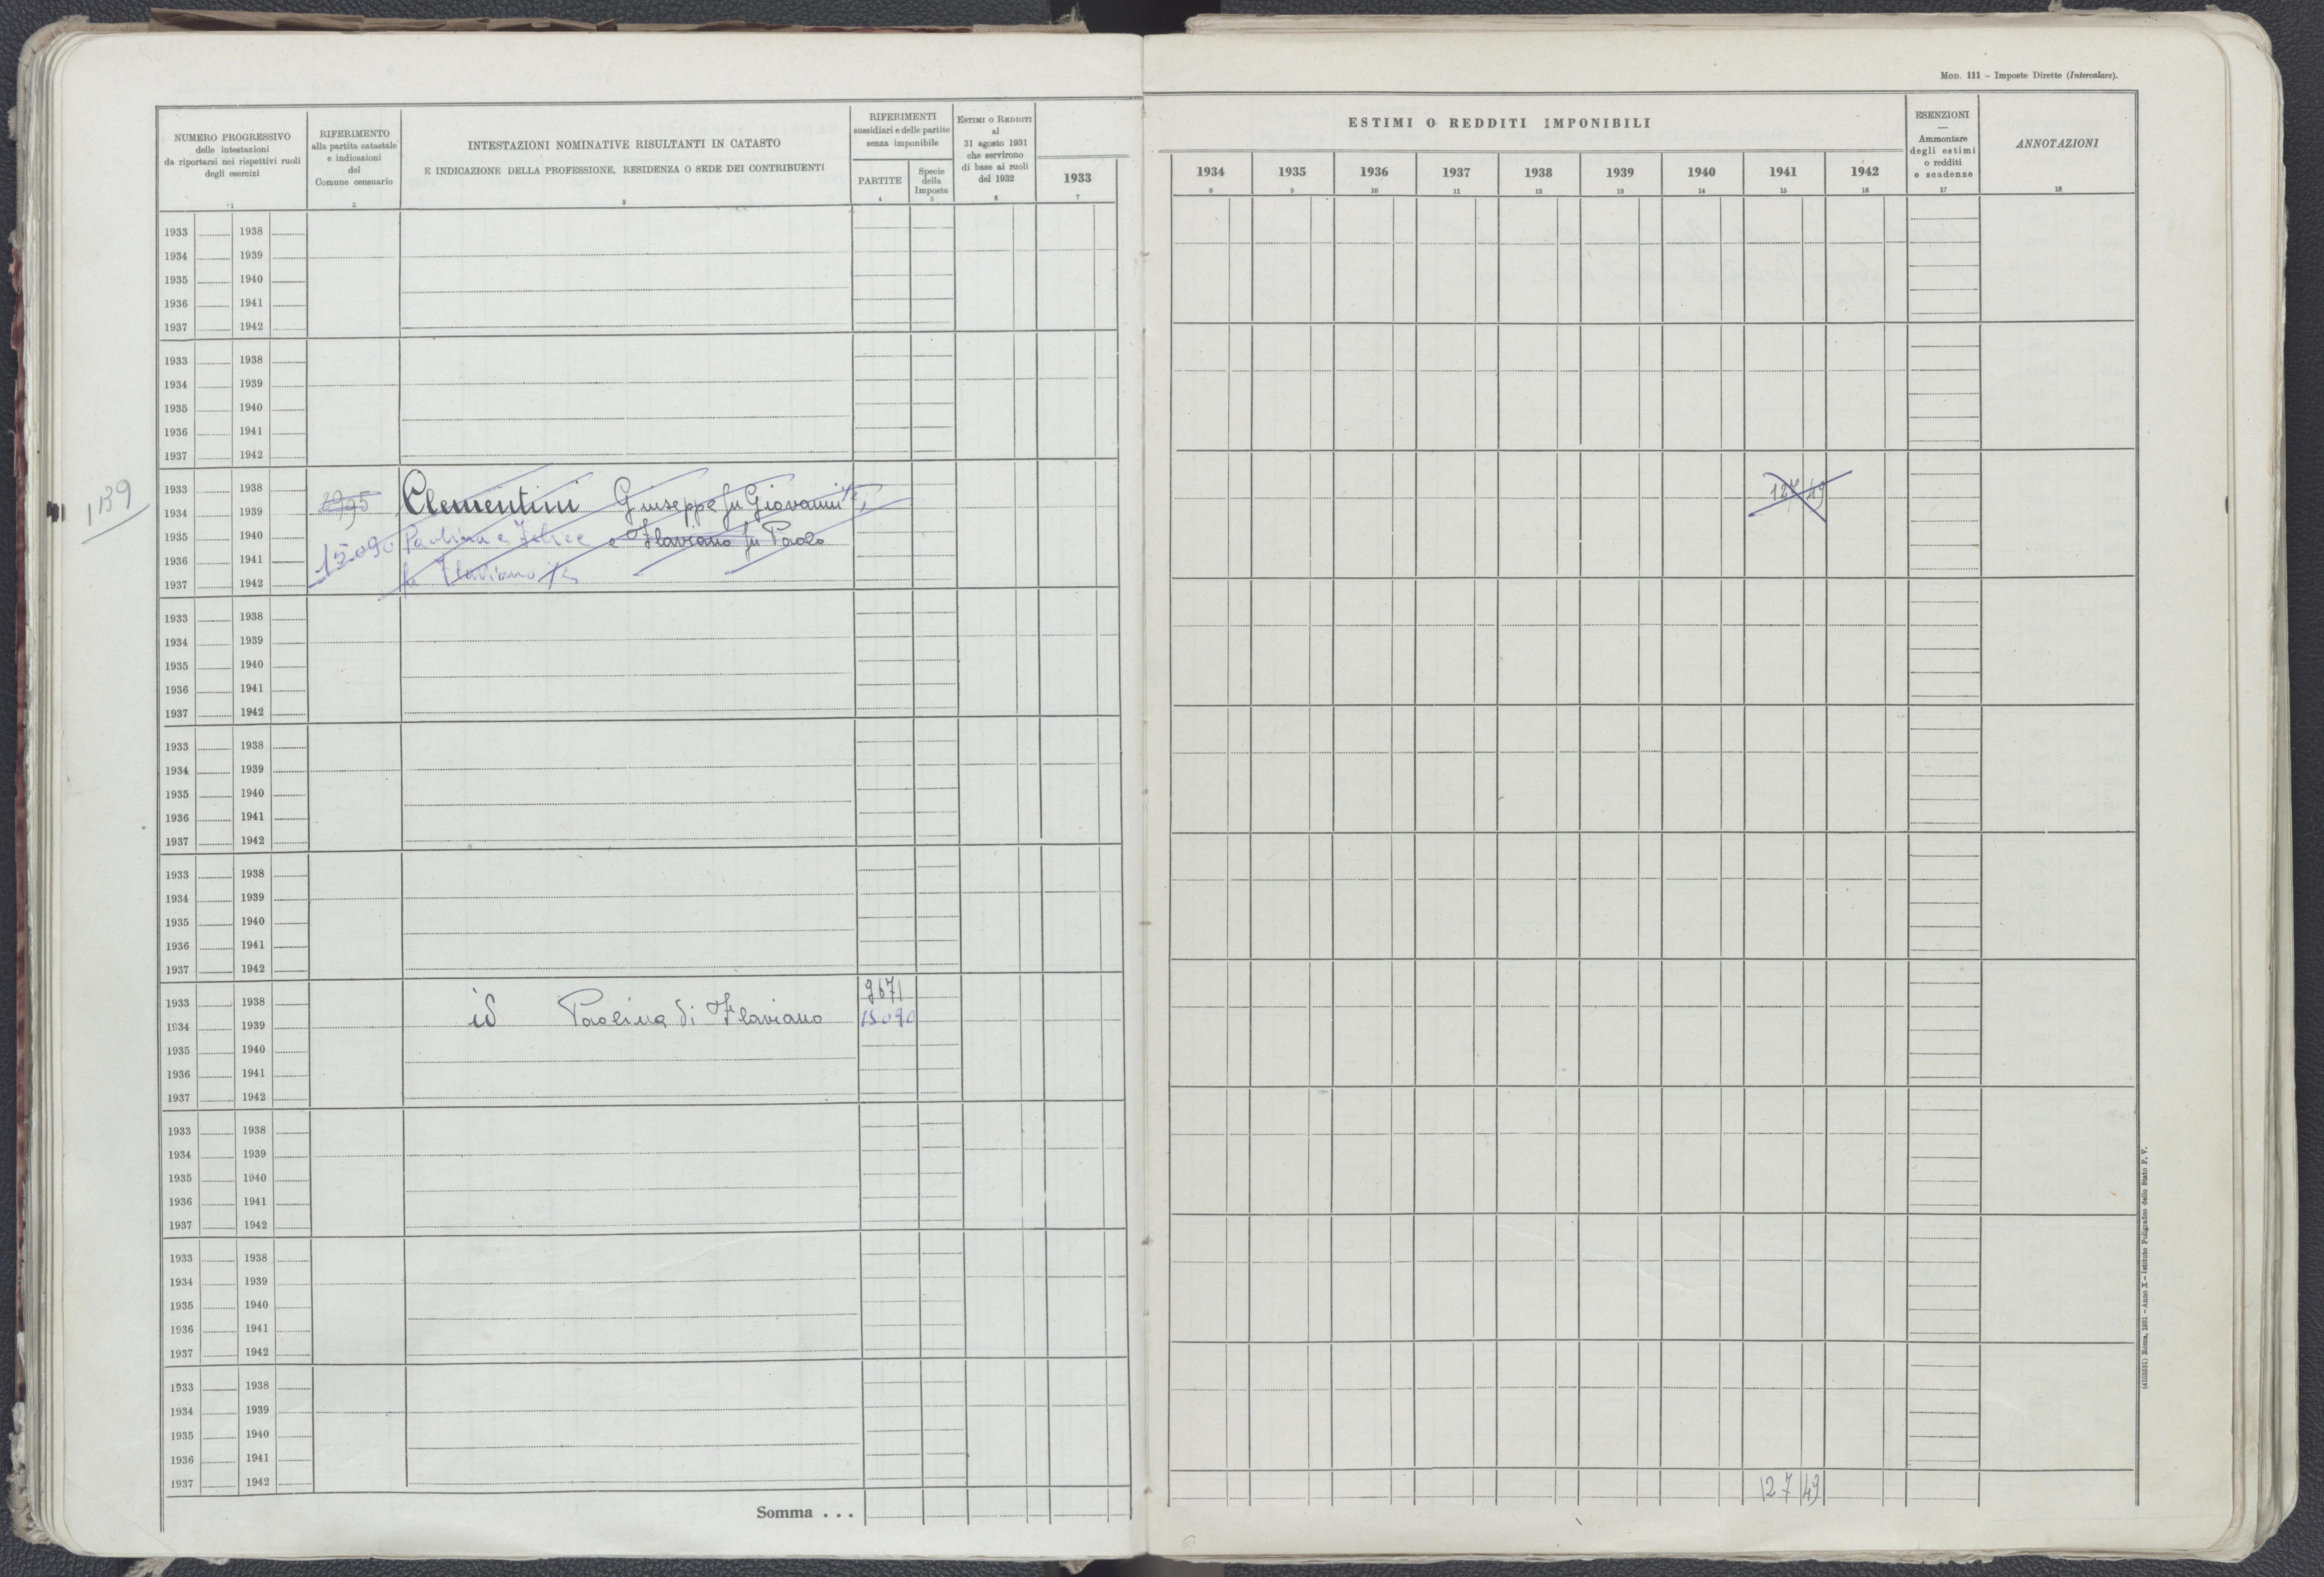 MOD. 111 – Imposte Dirette (Intercalare).
NUMERO PROGRESSIVO
delle intestazioni
da riportarsi nei rispettivi ruoli
degli esercizi
1
RIFERIMENTO
alla partita catastale
e indicazioni
del
Comune censuario
2
INTESTAZIONI NOMINATIVE RISULTANTI IN CATASTO
E INDICAZIONE DELLA PROFESSIONE, RESIDENZA O SEDE DEI CONTRIBUENTI
3
RIFERIMENTI
sussidiari e delle partite
senza imponibile
PARTITE
4
Specie
della
Imposta
5
ESTIMI O REDDITI
al
31 agosto 1931
che servirono
di base ai ruoli
del 1932
6
1933
7
ESTIMI O REDDITI IMPONIBILI
1934 1935 1936 1937 1938 1939 1940 1941 1942
8 9 10 11 12 13 14 15 16
ESENZIONI
—
Ammontare
degli estimi
o redditi
e scadenze
17
ANNOTAZIONI
18
1933 1938
1934 1939
1935 1940
1936 1941
1937 1942
1933 1938
1934 1939
1935 1940
1936 1941
1937 1942
139
1933 1938
1934 1939 Clementini Giuseppe fu Giovanni 127 49
1935 1940 15090 Paolina e Felice e Flaviano fu Paolo
1936 1941
1937 1942 fu Flaviano
1933 1938
1934 1939
1935 1940
1936 1941
1937 1942
1933 1938
1934 1939
1935 1940
1936 1941
1937 1942
1933 1938
1934 1939
1935 1940
1936 1941
1937 1942
1933 1938 9671
1934 1939 id Paolina di Flaviano 15090
1935 1940
1936 1941
1937 1942
1933 1938
1934 1939
1935 1940
1936 1941
1937 1942
1933 1938
1934 1939
1935 1940
1936 1941
1937 1942
1933 1938
1934 1939
1935 1940
1936 1941
1937 1942
Somma . . . 127 49
(4103031) Roma, 1931 – Anno X – Istituto Poligrafico dello Stato P. V.